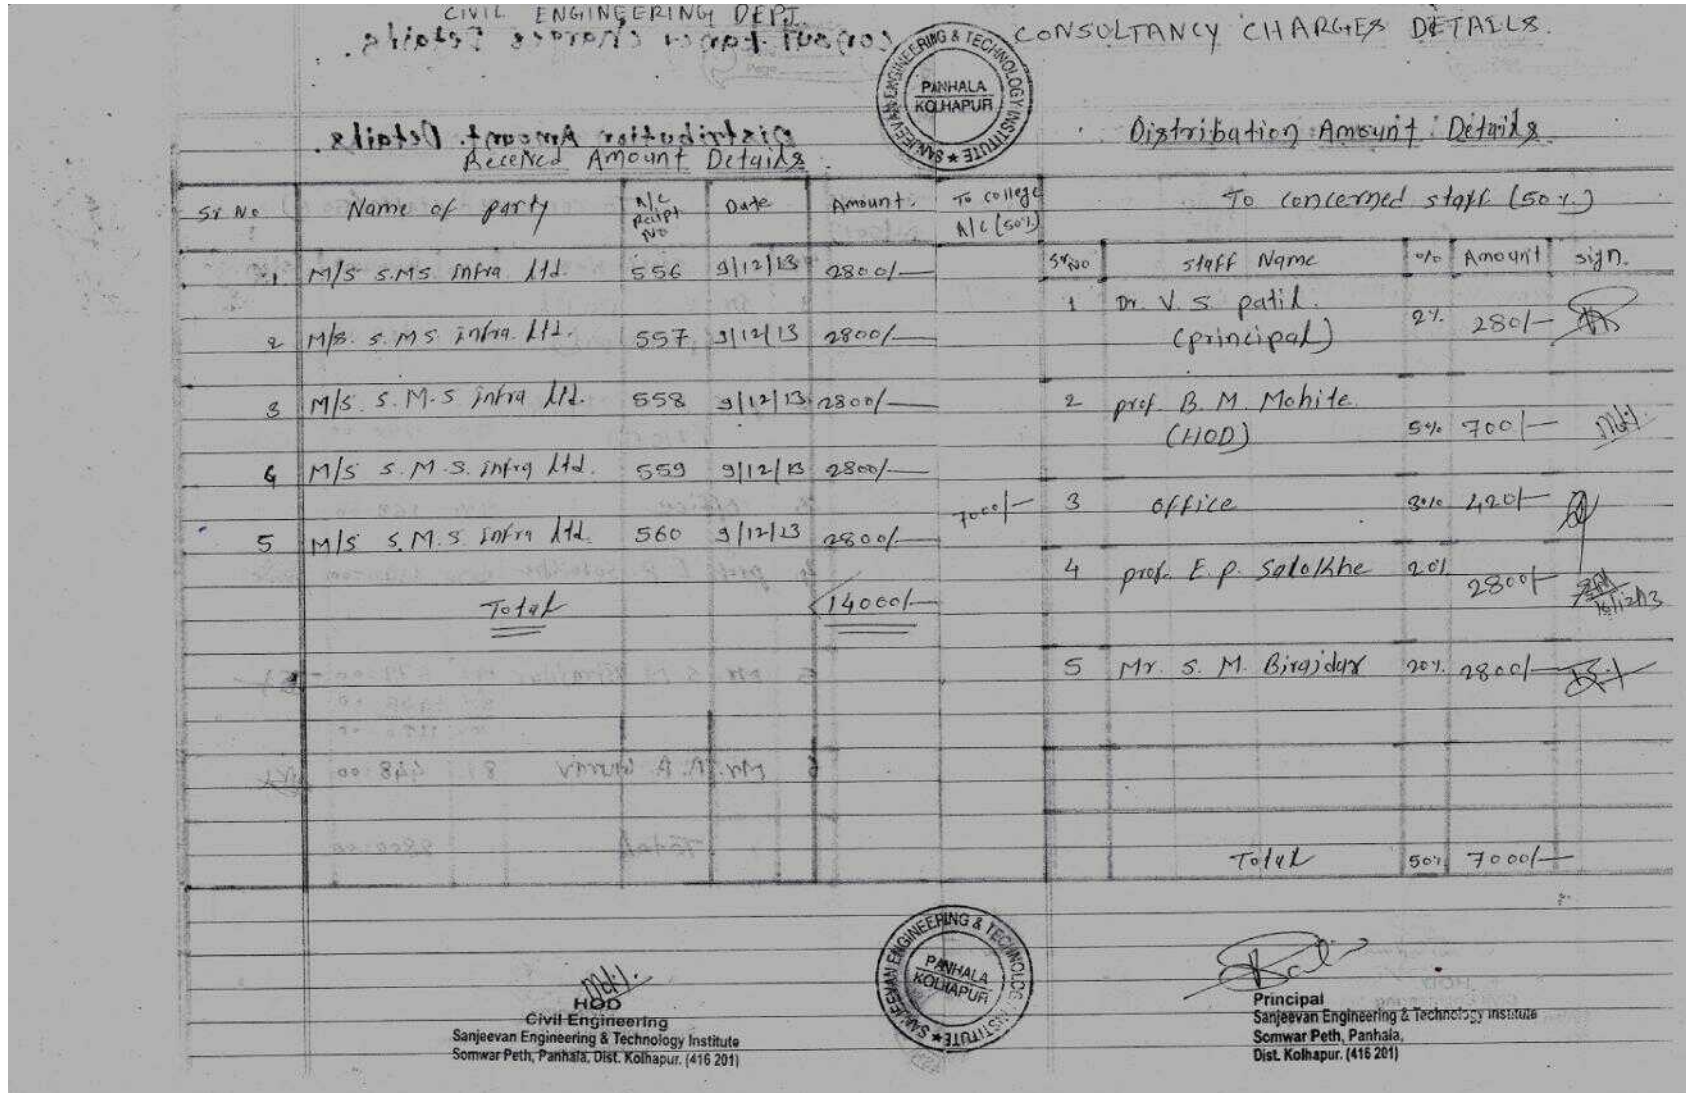 CIVIL ENGINEERING DEPT.
CONSULTANCY CHARGES DETAILS.
SANJEEVAN ENGINEERING & TECHNOLOGY INSTITUTE
PANHALA
KOLHAPUR
Received Amount Details
Distribation Amount Details
Sr No Name of party A/c Reipt No Date Amount. To college A/c (50%)
To concerned staff (50%)
1 M/S S.M.S. infra ltd. 556 9/12/13 2800/-
2 M/S. S.M.S infra ltd. 557 9/12/13 2800/-
3 M/S S.M.S infra ltd. 558 9/12/13 2800/-
4 M/S S.M.S. infra ltd. 559 9/12/13 2800/-
5 M/S S.M.S infra ltd. 560 9/12/13 2800/-
7000/-
Total 14000/-
Sr No staff Name % Amount sign.
1 Dr. V. S. patil. 2% 280/-
(principal)
2 prof. B. M. Mohite.
(HOD) 5% 700/-
3 office 3% 420/-
4 prof. E. P. Salokhe 20% 2800/-
16/12/13
5 Mr. S. M. Birajdar 20% 2800/-
Total 50% 7000/-
HOD
Civil Engineering
Sanjeevan Engineering & Technology Institute
Somwar Peth, Panhala, Dist. Kolhapur. (416 201)
SANJEEVAN ENGINEERING & TECHNOLOGY INSTITUTE
PANHALA
KOLHAPUR
Principal
Sanjeevan Engineering & Technology Institute
Somwar Peth, Panhala,
Dist. Kolhapur. (416 201)